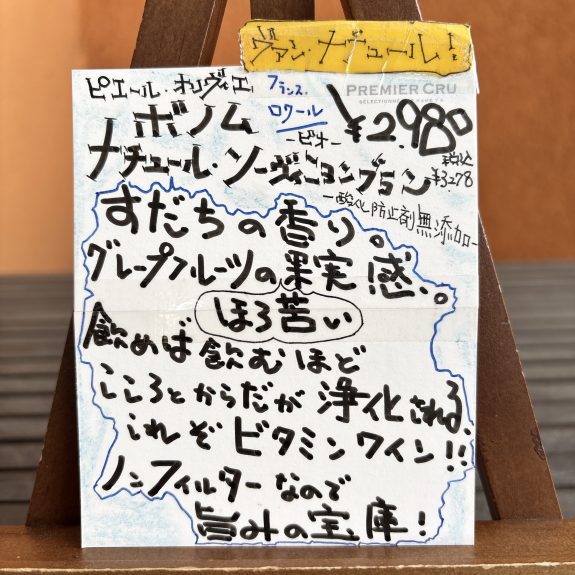 ヴァン・ナチュール!
PREMIER CRU
ピエール・オリヴィエ
フランス.
ロワール
ボノム
ービオー
¥2,980
税込
¥3278
ナチュール・ソーヴィニョンブラン
ー酸化防止剤無添加ー
すだちの香り。
グレープフルーツの果実感。。
ほろ苦い
飲めば飲むほど
こころとからだが浄化される。
これぞビタミンワイン!!
ノンフィルターなので
旨みの宝庫!